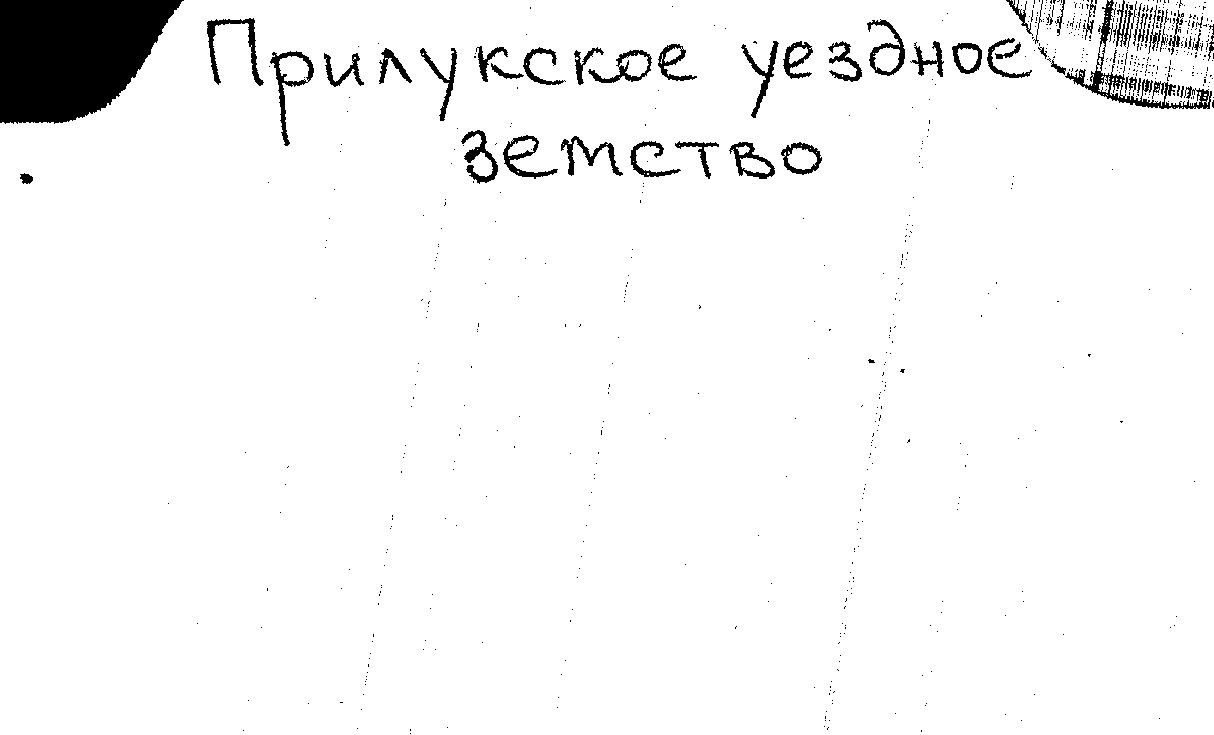 Прилукское уездное
земство